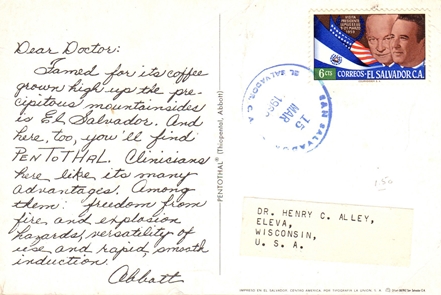 Dear Doctor:
Famed for its coffee
grown high up the pre-
cipitous mountainsides
is El Salvador. And
here, too, you'll find
PENTOTHAL. Clinicians
here like its many
advantages. Among
them: freedom from
fire and explosion
hazards, versatility of
use and rapid, smooth
induction.
Abbott
PENTOTHAL® (Thiopental, Abbott)
VISITA
PRESIDENTE
6 CTS
CORREOS·EL SALVADOR, C.A.
SAN SALVADOR
EL SALVADOR, C.A.
15
MAR
DR. HENRY C. ALLEY,
ELEVA,
WISCONSIN,
U. S. A.